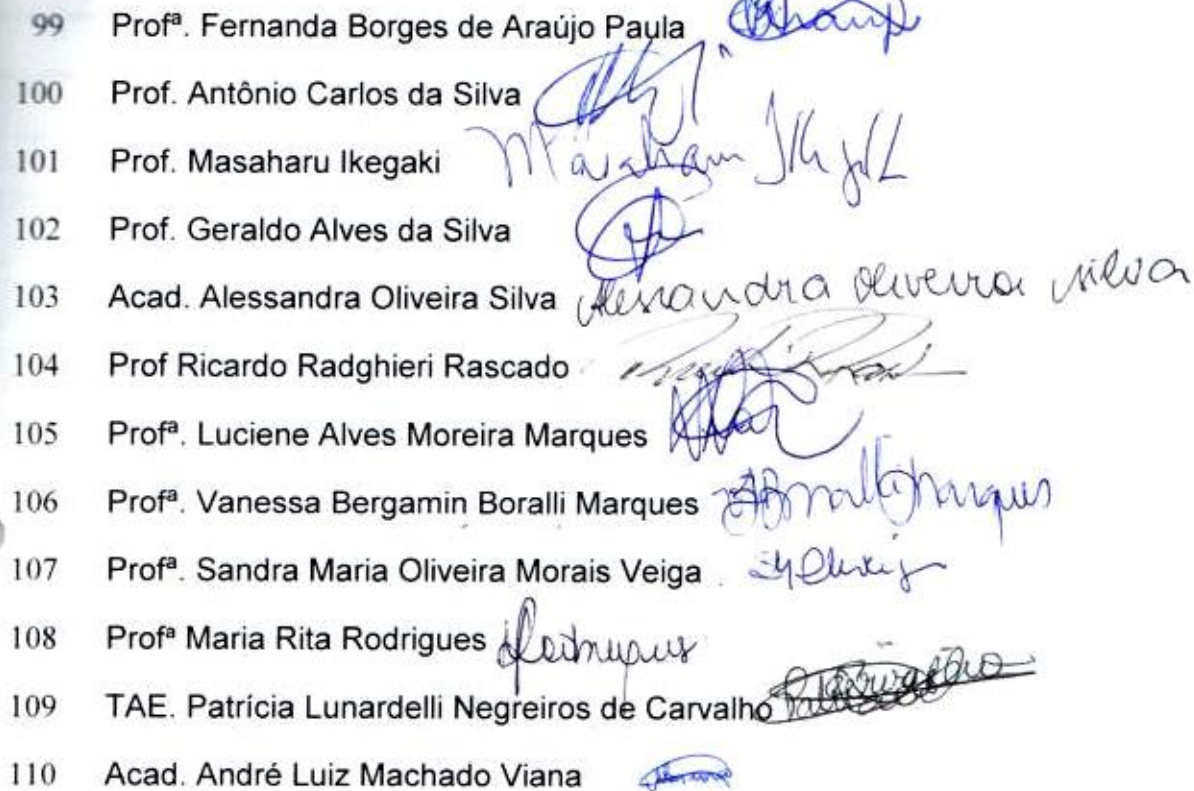 99 Profª. Fernanda Borges de Araújo Paula
100 Prof. Antônio Carlos da Silva
101 Prof. Masaharu Ikegaki
102 Prof. Geraldo Alves da Silva
103 Acad. Alessandra Oliveira Silva Alessandra Oliveira Silva
104 Prof Ricardo Radghieri Rascado
105 Profª. Luciene Alves Moreira Marques
106 Profª. Vanessa Bergamin Boralli Marques
107 Profª. Sandra Maria Oliveira Morais Veiga
108 Profª Maria Rita Rodrigues
109 TAE. Patrícia Lunardelli Negreiros de Carvalho
110 Acad. André Luiz Machado Viana